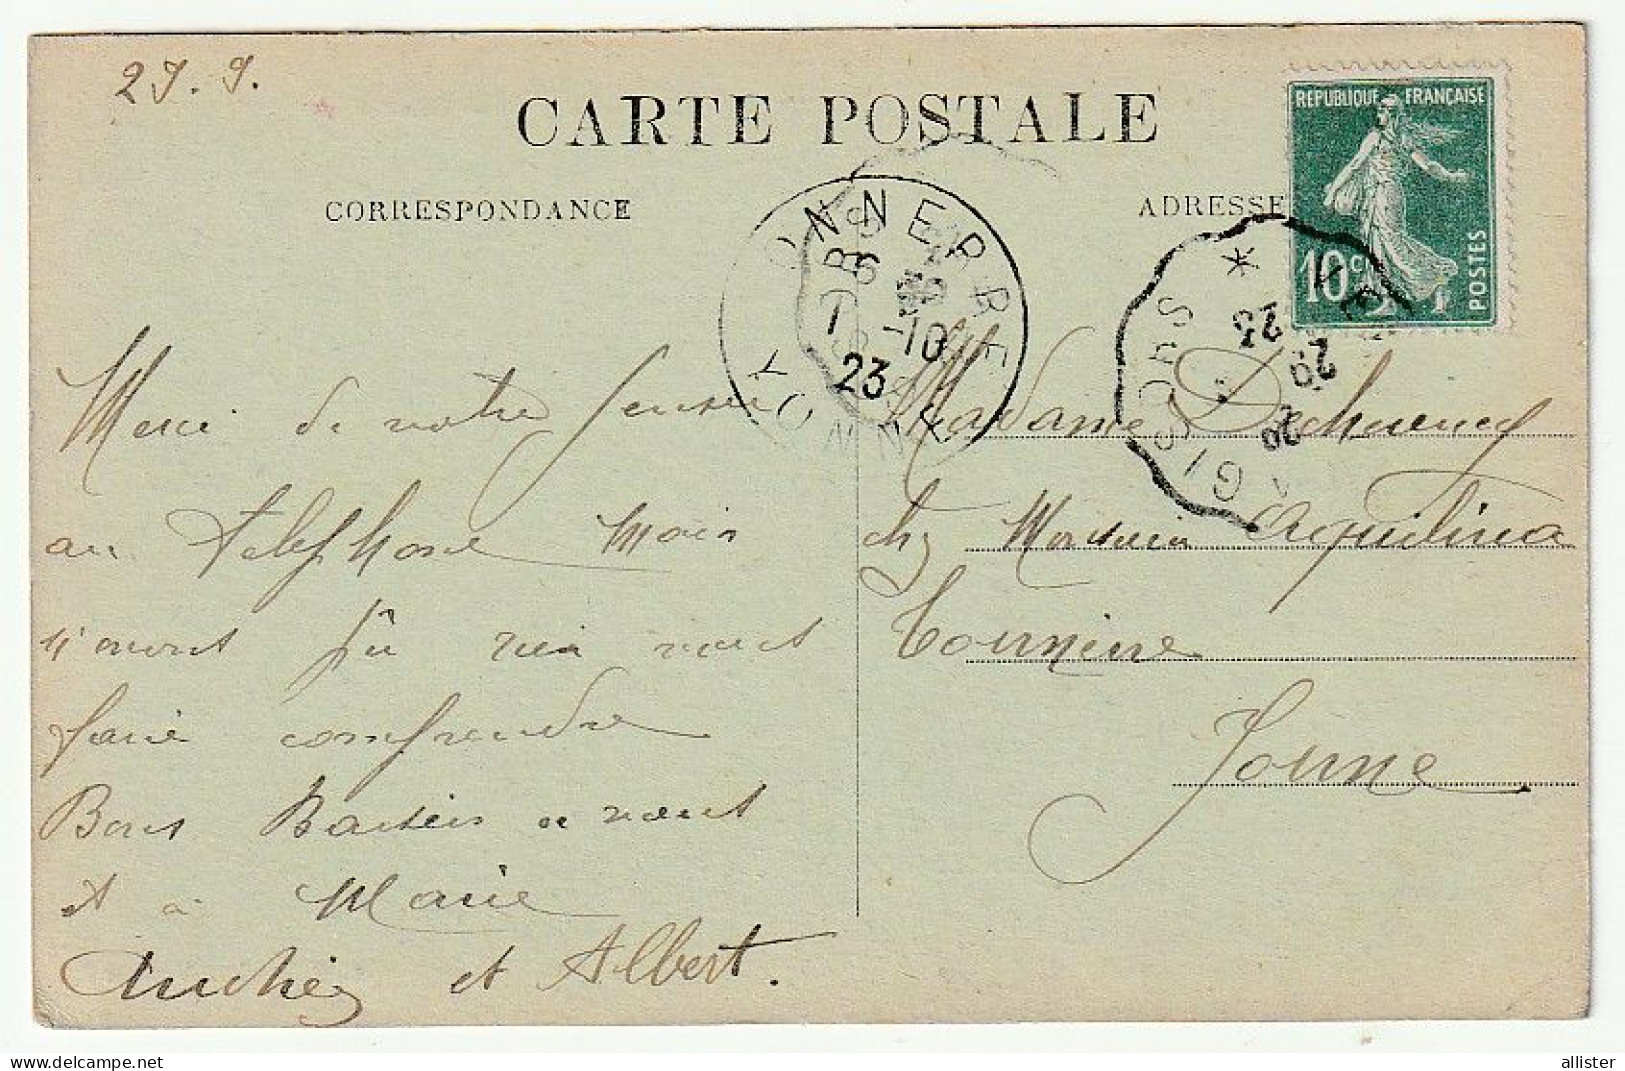 29. 9.
CARTE POSTALE
CORRESPONDANCE
ADRESSE
REPUBLIQUE FRANÇAISE
10c
POSTES
TONNERRE
1 -10
23
YONNE
GISORS
*
29
23
Merci de votre
au telephone mais
n'avons pû rien vous
faire comprendre
Bons Baisers a vous
et a Marie
et Albert.
Madame
chz Monsieur Aquilina
Tonnerre
Yonne
allister
delcampe.net